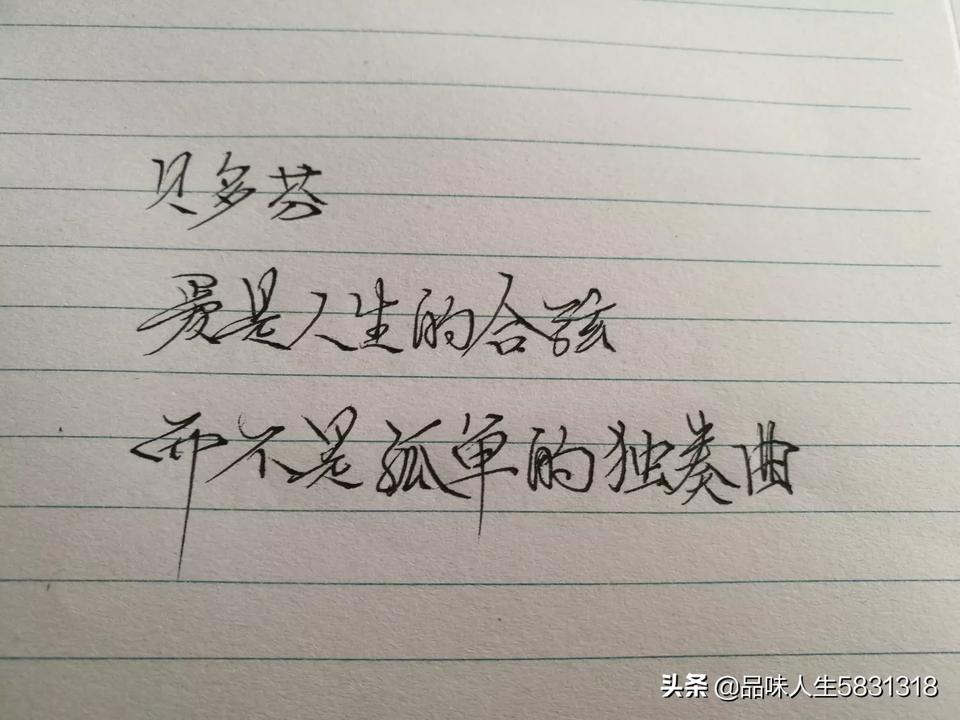 贝多芬
爱是人生的合弦
而不是孤单的独奏曲
头条 @品味人生5831318